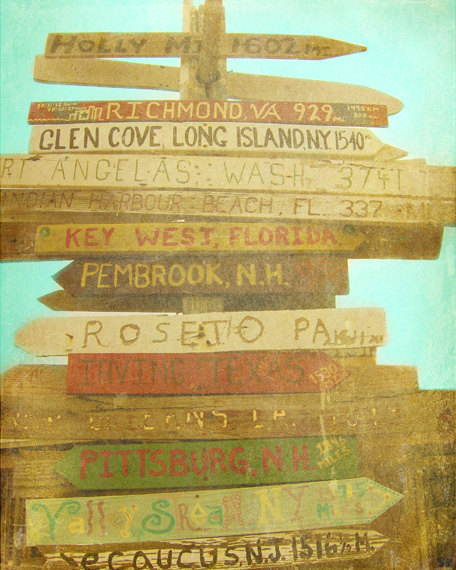 HOLLY MI 1602 MI.
RICHMOND, VA 929 MI.
GLEN COVE, LONG ISLAND, N.Y. 1540
RT ANGELAS WASH. 3741
INDIAN HARBOUR BEACH, FL. 337 MI
KEY WEST, FLORIDA
PEMBROOK, N.H.
ROSETO PA
IRVING TEXAS 1530
ORLEANS LA.
PITTSBURG, N.H.
MILES
Valley Stream, NY
ecaucus, N.J. 1516½ M.